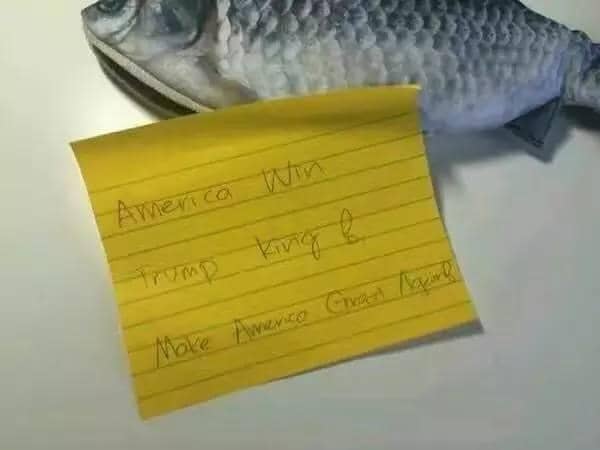 America Win
Trump King
Make America Great Again